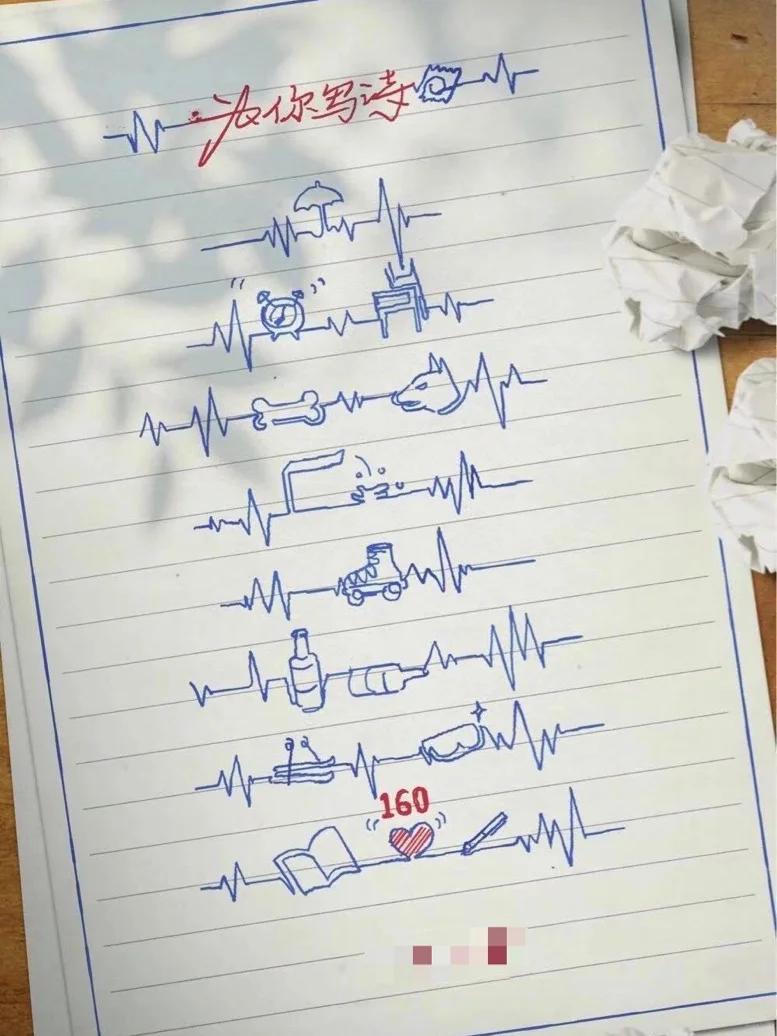 为你写诗
160